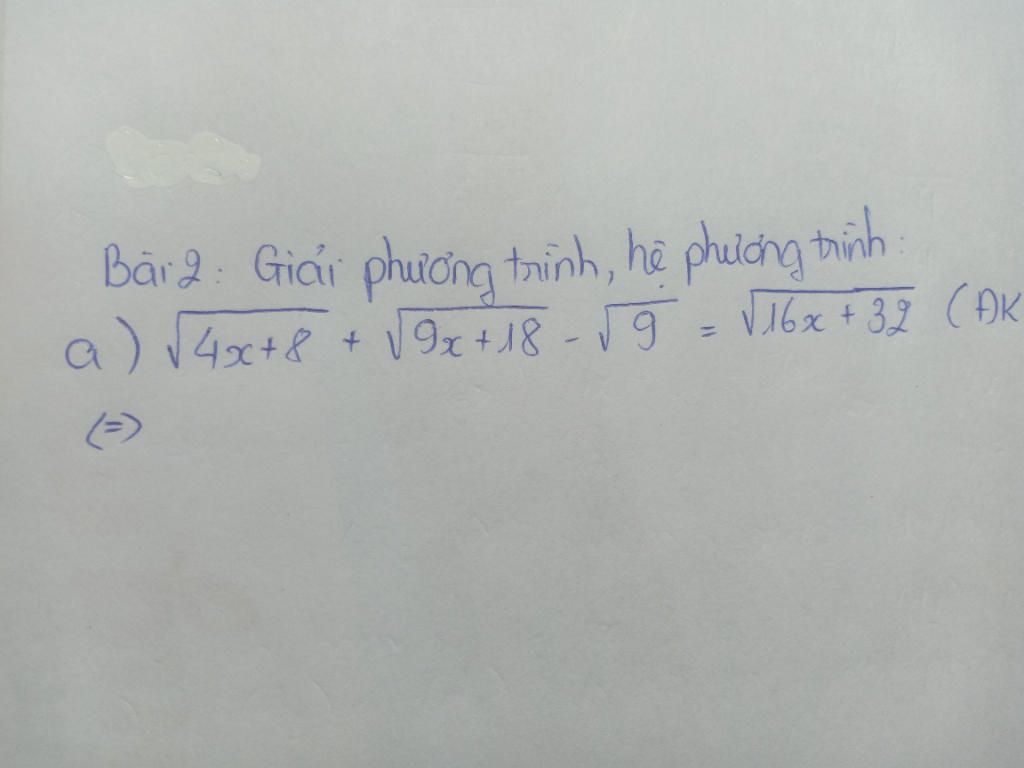 Bài 2: Giải phương trình, hệ phương trình:
a) √4x+8 + √9x+18 - √9 = √16x+32 (ĐK
<=>